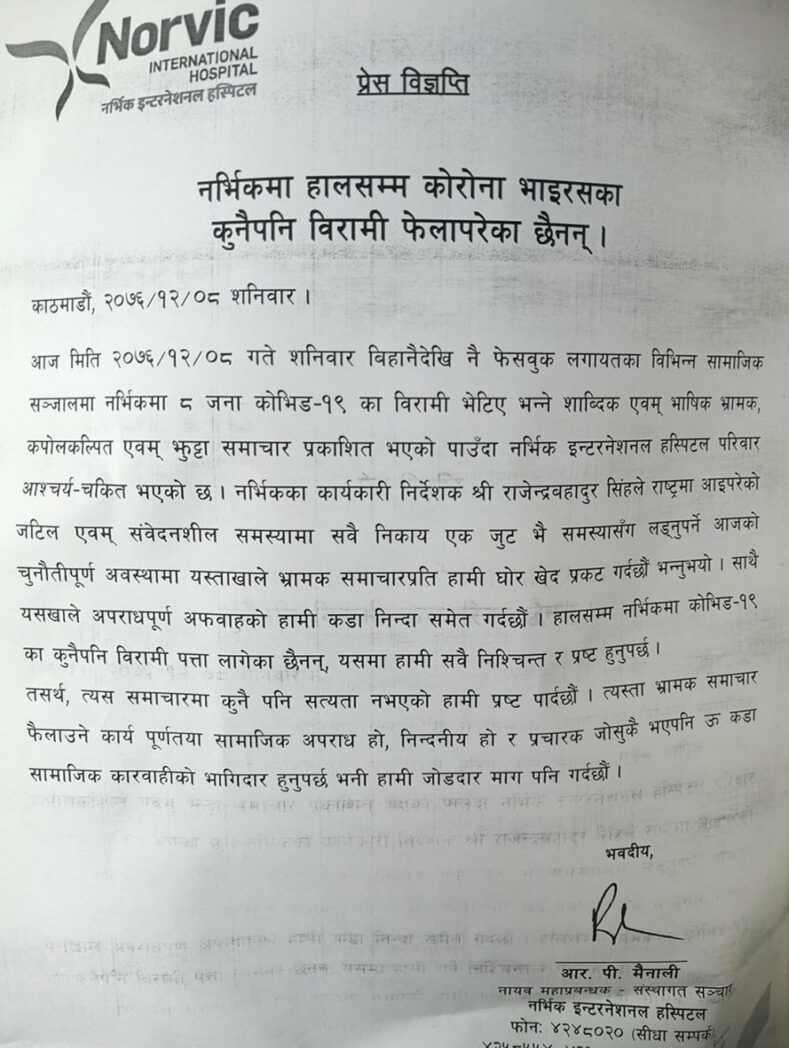 Norvic
INTERNATIONAL
HOSPITAL
नर्भिक इन्टरनेशनल हस्पिटल
प्रेस विज्ञप्ति
नर्भिकमा हालसम्म कोरोना भाइरसका
कुनैपनि विरामी फेलापरेका छैनन् ।
काठमाडौं, २०७६/१२/०८ शनिवार ।
आज मिति २०७६/१२/०८ गते शनिवार विहानैदेखि नै फेसवुक लगायतका विभिन्न सामाजिक
सञ्जालमा नर्भिकमा ८ जना कोभिड-१९ का विरामी भेटिए भन्ने शाब्दिक एवम् भाषिक भ्रामक,
कपोलकल्पित एवम् झुट्टा समाचार प्रकाशित भएको पाउँदा नर्भिक इन्टरनेशनल हस्पिटल परिवार
आश्चर्य-चकित भएको छ । नर्भिकका कार्यकारी निर्देशक श्री राजेन्द्रबहादुर सिंहले राष्ट्रमा आइपरेको
जटिल एवम् संवेदनशील समस्यामा सवै निकाय एक जुट भै समस्यासँग लड्नुपर्ने आजको
चुनौतीपूर्ण अवस्थामा यस्ताखाले भ्रामक समाचारप्रति हामी घोर खेद प्रकट गर्दछौं भन्नुभयो । साथै
यसखाले अपराधपूर्ण अफवाहको हामी कडा निन्दा समेत गर्दछौं । हालसम्म नर्भिकमा कोभिड-१९
का कुनैपनि विरामी पत्ता लागेका छैनन्, यसमा हामी सवै निश्चिन्त र प्रष्ट हुनुपर्छ ।
तसर्थ, त्यस समाचारमा कुनै पनि सत्यता नभएको हामी प्रष्ट पार्दछौं । त्यस्ता भ्रामक समाचार
फैलाउने कार्य पूर्णतया सामाजिक अपराध हो, निन्दनीय हो र प्रचारक जोसुकै भएपनि ऊ कडा
सामाजिक कारवाहीको भागिदार हुनुपर्छ भनी हामी जोडदार माग पनि गर्दछौं ।
भवदीय,
आर. पी. मैनाली
नायव महाप्रवन्धक - संस्थागत सञ्चा
नर्भिक इन्टरनेशनल हस्पिटल
फोन: ४२४८०२० (सीधा सम्पर्क